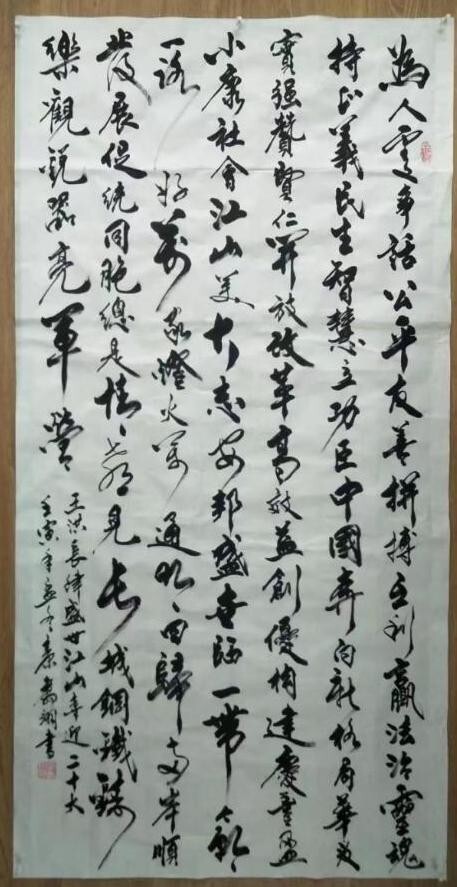 為人處事話公平友善拼搏互利贏法治靈魂
持正義民生智慧立功臣中國奔向新格局華夏
實强贊賢仁開放改革高效益創優構建慶豐盈
小康社會江山美大志安邦盛世臨一帶
一路好萬家燈火通回歸兩岸順
發展促統同胞總是情見長城鋼鐵
樂觀亮軍營
王洪長律盛世江山喜迎二十大
壬寅年孟冬書